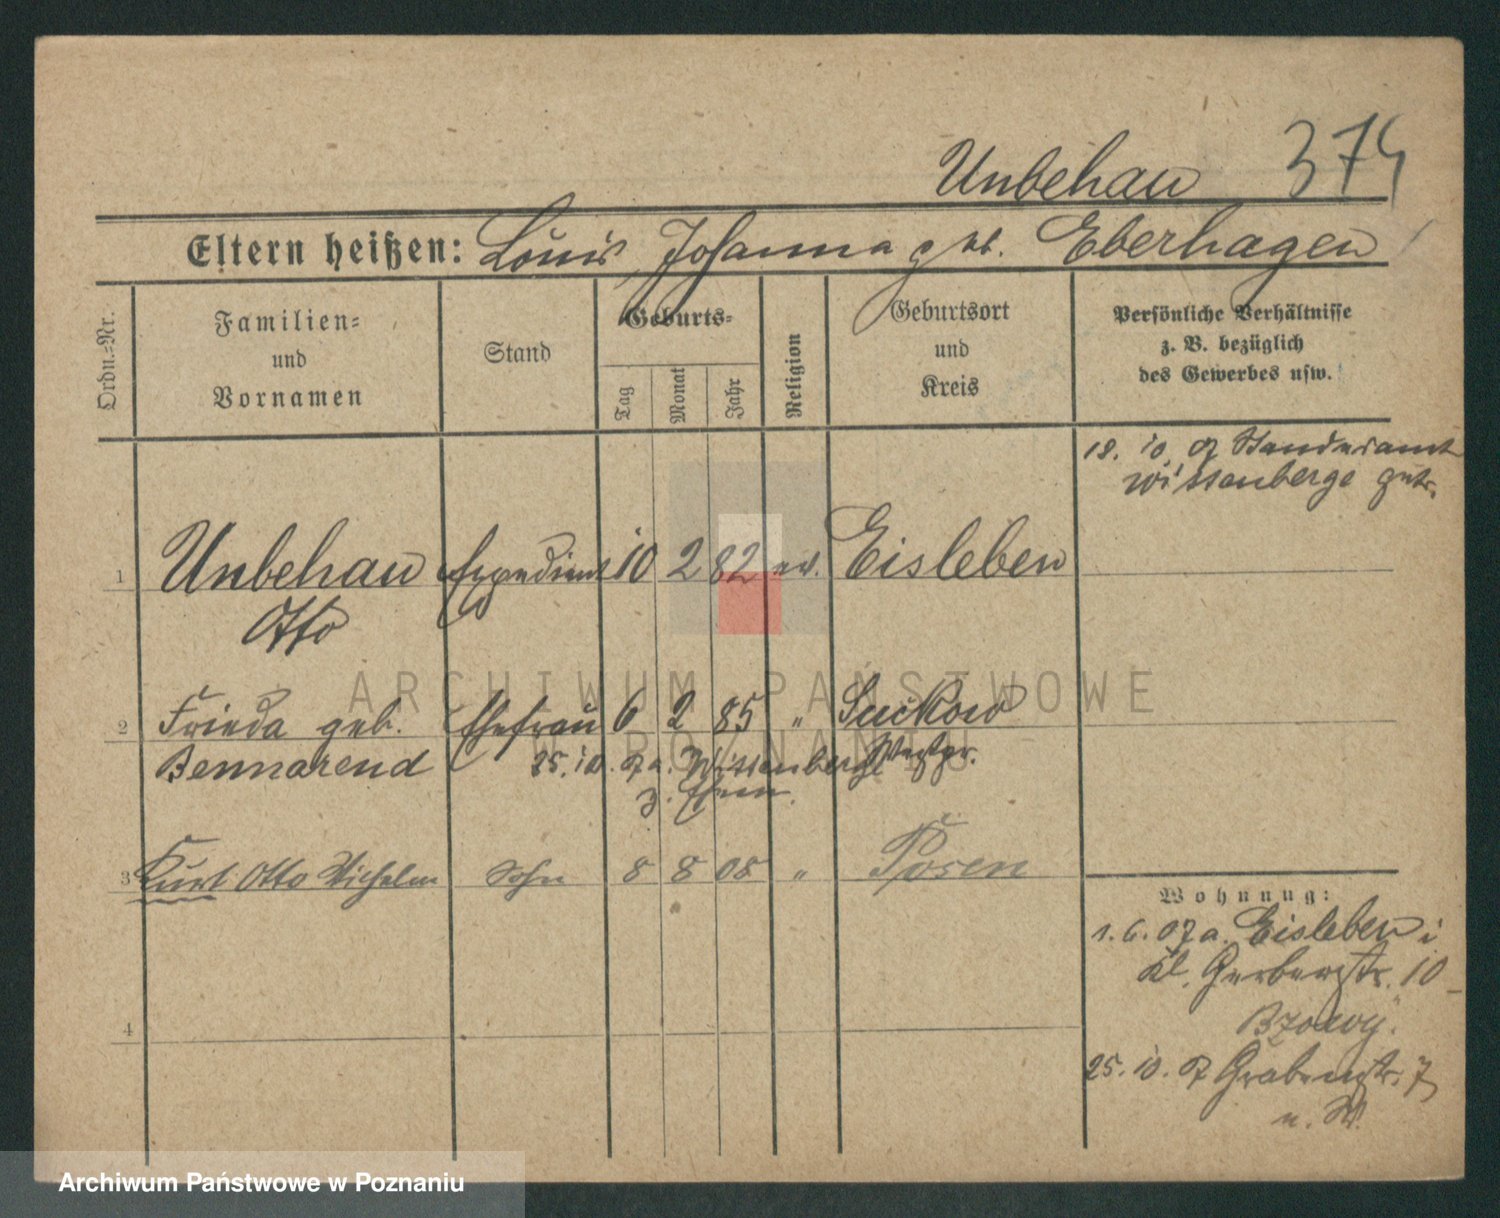 Unbehau 374
Eltern heißen: Louis, Johanna geb. Eberhagen
Ordn.=Nr.
Familien=
und
Vornamen
Stand
Geburts=
Tag
Monat
Jahr
Religion
Geburtsort
und
Kreis
Persönliche Verhältnisse
z. B. bezüglich
des Gewerbes usw.
18. 10. 07 Standesamt
Wittenberge
1 Unbehau Expedient 10 2 82 ev. Eisleben
Otto
2 Frieda geb. Ehefrau 6 2 85 " Suckow
Bennarend 25. 10. 07 a. Wittenberge Westpr.
z. Ehem.
3 Kurt Otto Wilhelm Sohn 8 8 08 " Posen
4
Wohnung:
1. 6. 07 a. Eisleben i
Kl. Gerberstr. 10
25. 10. 07 Grabenstr. 7
ARCHIWUM PAŃSTWOWE
W POZNANIU
Archiwum Państwowe w Poznaniu